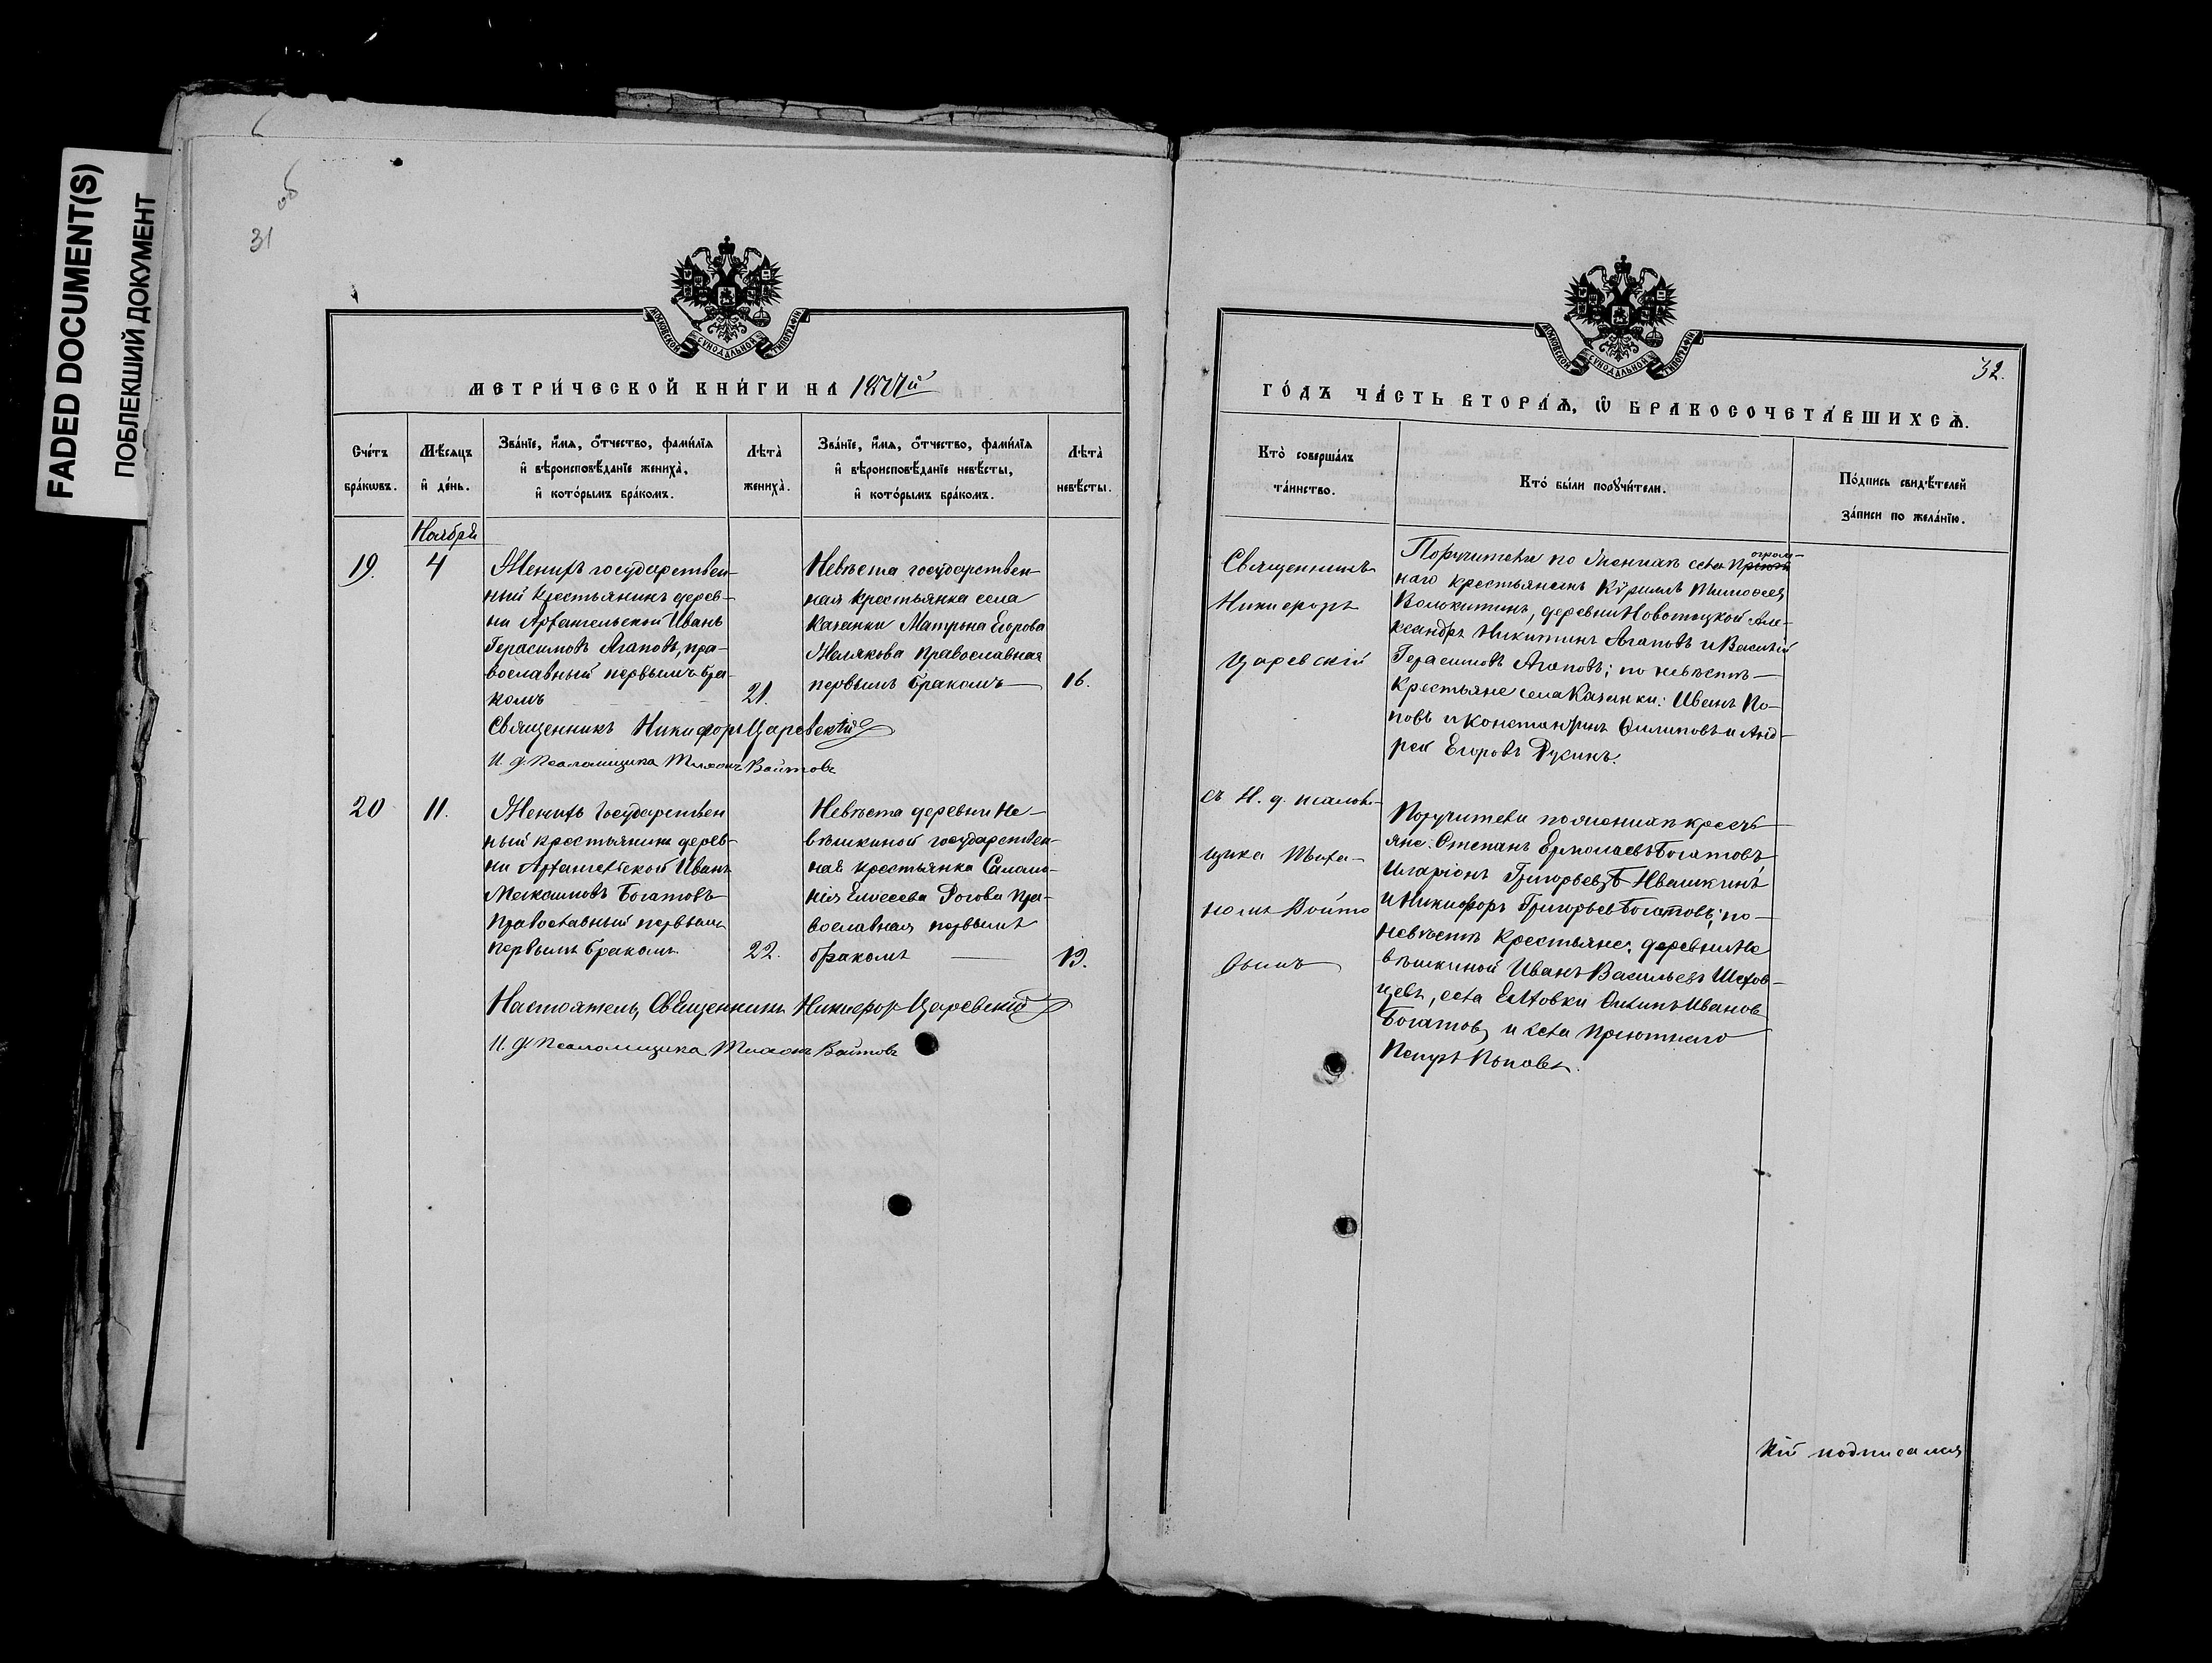 FADED DOCUMENT(S)
ПОБЛЕКШИЙ ДОКУМЕНТ
об
31
МОСКОВСКОЙ СѴНОДАЛЬНОЙ ТИПОГРАФІИ
МЕТРИ́ЧЕСКОЙ КНИ́ГИ НА
Сче́тъ бра́кѡвъ.
Мѣ́сяцъ и҆ де́нь.
Зва́нїе, и҆́мѧ, ѻ҆́тчество, фами́лїѧ и҆ вѣроисповѣ́данїе жениха̀, и҆ кото́рымъ бра́комъ.
Лѣ́та жениха̀.
Зва́нїе, и҆́мѧ, ѻ҆́тчество, фами́лїѧ и҆ вѣроисповѣ́данїе невѣ́сты, и҆ кото́рымъ бра́комъ.
Лѣ́та невѣ́сты.
Ноября
19.
4
Женихъ государствен-
ный крестьянинъ дерев-
ни Архангельской Иванъ
Герасимовъ Агаповъ, пра-
вославный первымъ бра-
комъ
21.
Невѣста государствен-
ная крестьянка села
Казанки Матрона Егорова
православная
первымъ бракомъ
16.
Священникъ Никифоръ Царевскій
И. д. Псаломщика Войтовъ
20
11.
Женихъ Государствен
ный крестьянинъ дерев-
ни Архангельской Иванъ
Максимовъ Богатовъ
Православный первымъ
первымъ бракомъ.
22.
Невѣста деревни Не-
вѣшкиной государствен-
ная крестьянка Салама-
нія Елисеева Рогова пра-
вославная первымъ
бракомъ
19.
Настоятель, Священникъ Никифоръ Царевскій
И. д. Псаломщика Войтовъ
МОСКОВСКОЙ СѴНОДАЛЬНОЙ ТИПОГРАФІИ
32.
ГО́ДЪ ЧА́СТЬ ВТОРА́Ѧ, Ѽ БРАКОСОЧЕТА́ВШИХСѦ.
Кто̀ соверша́лъ та́инство.
Кто̀ бы́ли порꙋчи́тели.
По́дпись свидѣ́телей за́писи по жела́нїю.
Священникъ
Никифоръ
Царевскій
съ И. д. псалом-
щика
Войто
вымъ
Поручители по женихѣ села
наго крестьянинъ Кирилъ
Волокитинъ, деревни Але-
ксандръ Никитинъ Агаповъ и Василій
Герасимовъ Агаповъ; по невѣстѣ
Крестьяне села Казанки: Иванъ По-
повъ и Константинъ Филиповъ и Анд-
рей Егоровъ
Поручители по женихѣ кресть
яне: Степанъ Ермолаевъ Богатовъ
Иларіонъ Григорьевъ Ивашкинъ
и Никифоръ Григорьев Богатовъ; по
невѣстѣ крестьяне: деревни Не
вѣшкиной Иванъ Васильевъ Шехов-
цевъ, села Елховки Иванов
Богатовъ и села Пріютнаго
Петръ Поповъ.
кій подписался